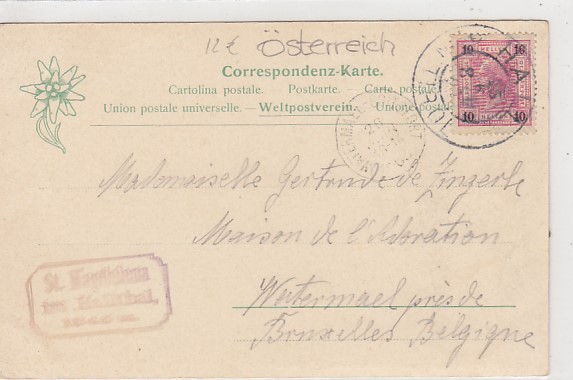 12 € Österreich
Correspondenz-Karte.
Cartolina postale. Postkarte. Carte postale.
Union postale universelle. — Weltpostverein. — Unione postale
10 10
10 10
HALL
TIROL
Mademoiselle Gertrude de Zingerle
Maison de l'Adoration
Watermael près de
Bruxelles Belgique
St. Magdalena
im Hallthal,